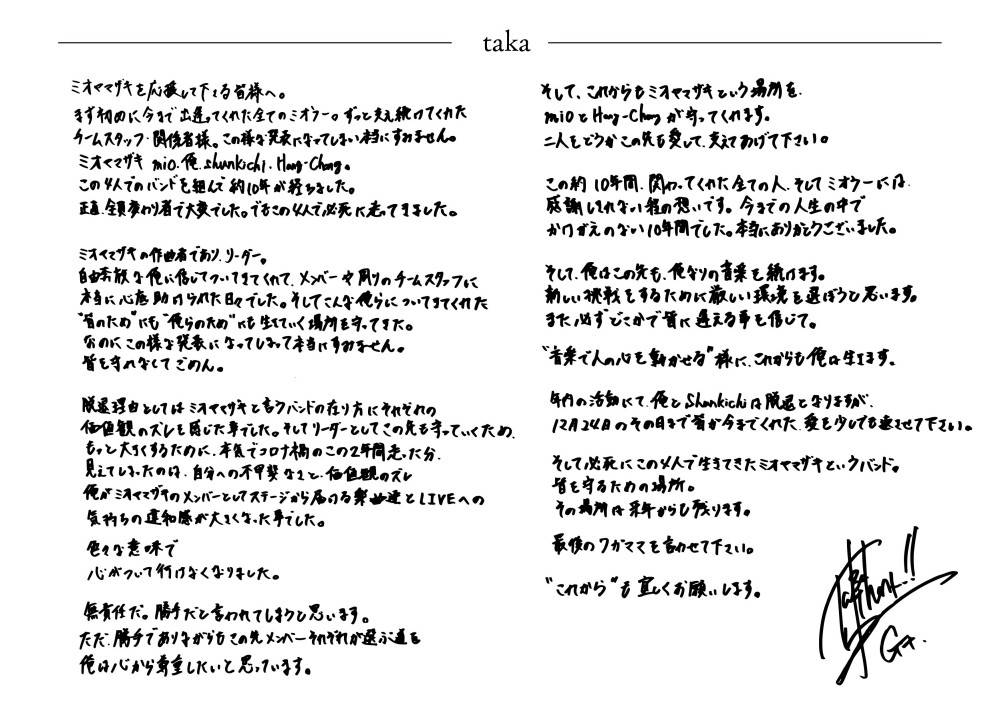 taka
ミオヤマザキを応援して下さる皆様へ。
まず初めに今まで出逢ってくれた全てのミオラー。ずっと支え続けてくれた
チームスタッフ・関係者様。この様な発表になってしまい本当にすみません。
ミオヤマザキ mio.俺.shunkichi.Hang-Chang。
この4人でのバンドを組んで約10年が経ちました。
正直、全員変わり者で大変でした。でもこの4人で必死に走ってきました。
ミオヤマザキの作曲者であり、リーダー。
自由奔放な俺に信じてついてきてくれて、メンバーや周りのチームスタッフに
本当に心底助けられた日々でした。そしてこんな俺らについてきてくれた
"皆のため"にも"俺らのため"にも生きていく場所を守ってきた。
なのにこの様な発表になってしまって本当にすみません。
皆を守れなくてごめん。
脱退理由としてはミオヤマザキと言うバンドの在り方にそれぞれの
価値観のズレを感じた事でした。そしてリーダーとしてこの先も守っていくため、
もっと大きくするために、本気でコロナ禍のこの2年間走った分、
見えてしまったのは、自分への不甲斐なさと、価値観のズレ
俺がミオヤマザキのメンバーとしてステージから届ける楽曲達とLIVEへの
気持ちの違和感が大きくなった事でした。
色々な意味で
心がついて行けなくなりました。
無責任だ。勝手だと言われてしまうと思います。
ただ、勝手でありながらもこの先メンバーそれぞれが選ぶ道を
俺は心から尊重したいと思っています。
そして、これからもミオヤマザキという場所を
mioとHang-Changが守ってくれます。
二人をどうかこの先も愛して、支えてあげて下さい。
この約10年間、関わってくれた全ての人、そしてミオラーには
感謝しきれない程の想いです。今までの人生の中で
かけがえのない10年間でした。本当にありがとうございました。
そして、俺はこの先も、俺なりの音楽を続けます。
新しい挑戦をするために厳しい環境を選ぼうと思います。
また必ずどこかで皆に逢える事を信じて。
"音楽で人の心を動かせる"様に、これからも俺は生きます。
年内の活動にて、俺とShunkichiは脱退となりますが、
12月24日のその日まで皆が今までくれた愛を少しでも返させて下さい。
そして必死にこの4人で生きてきたミオヤマザキというバンド。
皆を守るための場所。
その場所は来年からも残ります。
最後のワガママを言わせて下さい。
"これから"も宜しくお願いします。
Gt.